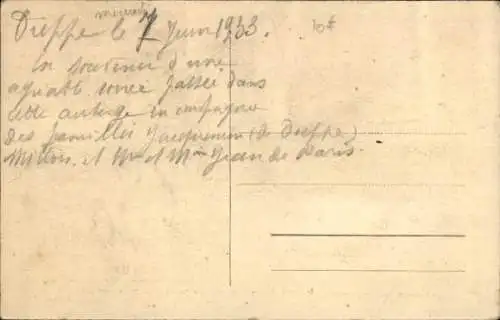 Dieppe le 7 Juin 1933.
En souvenir d'une
agréable soirée passée dans
cette auberge en compagnie
des familles Jacquemin (de Dieppe)
et Mr et Mme Jean de Paris.